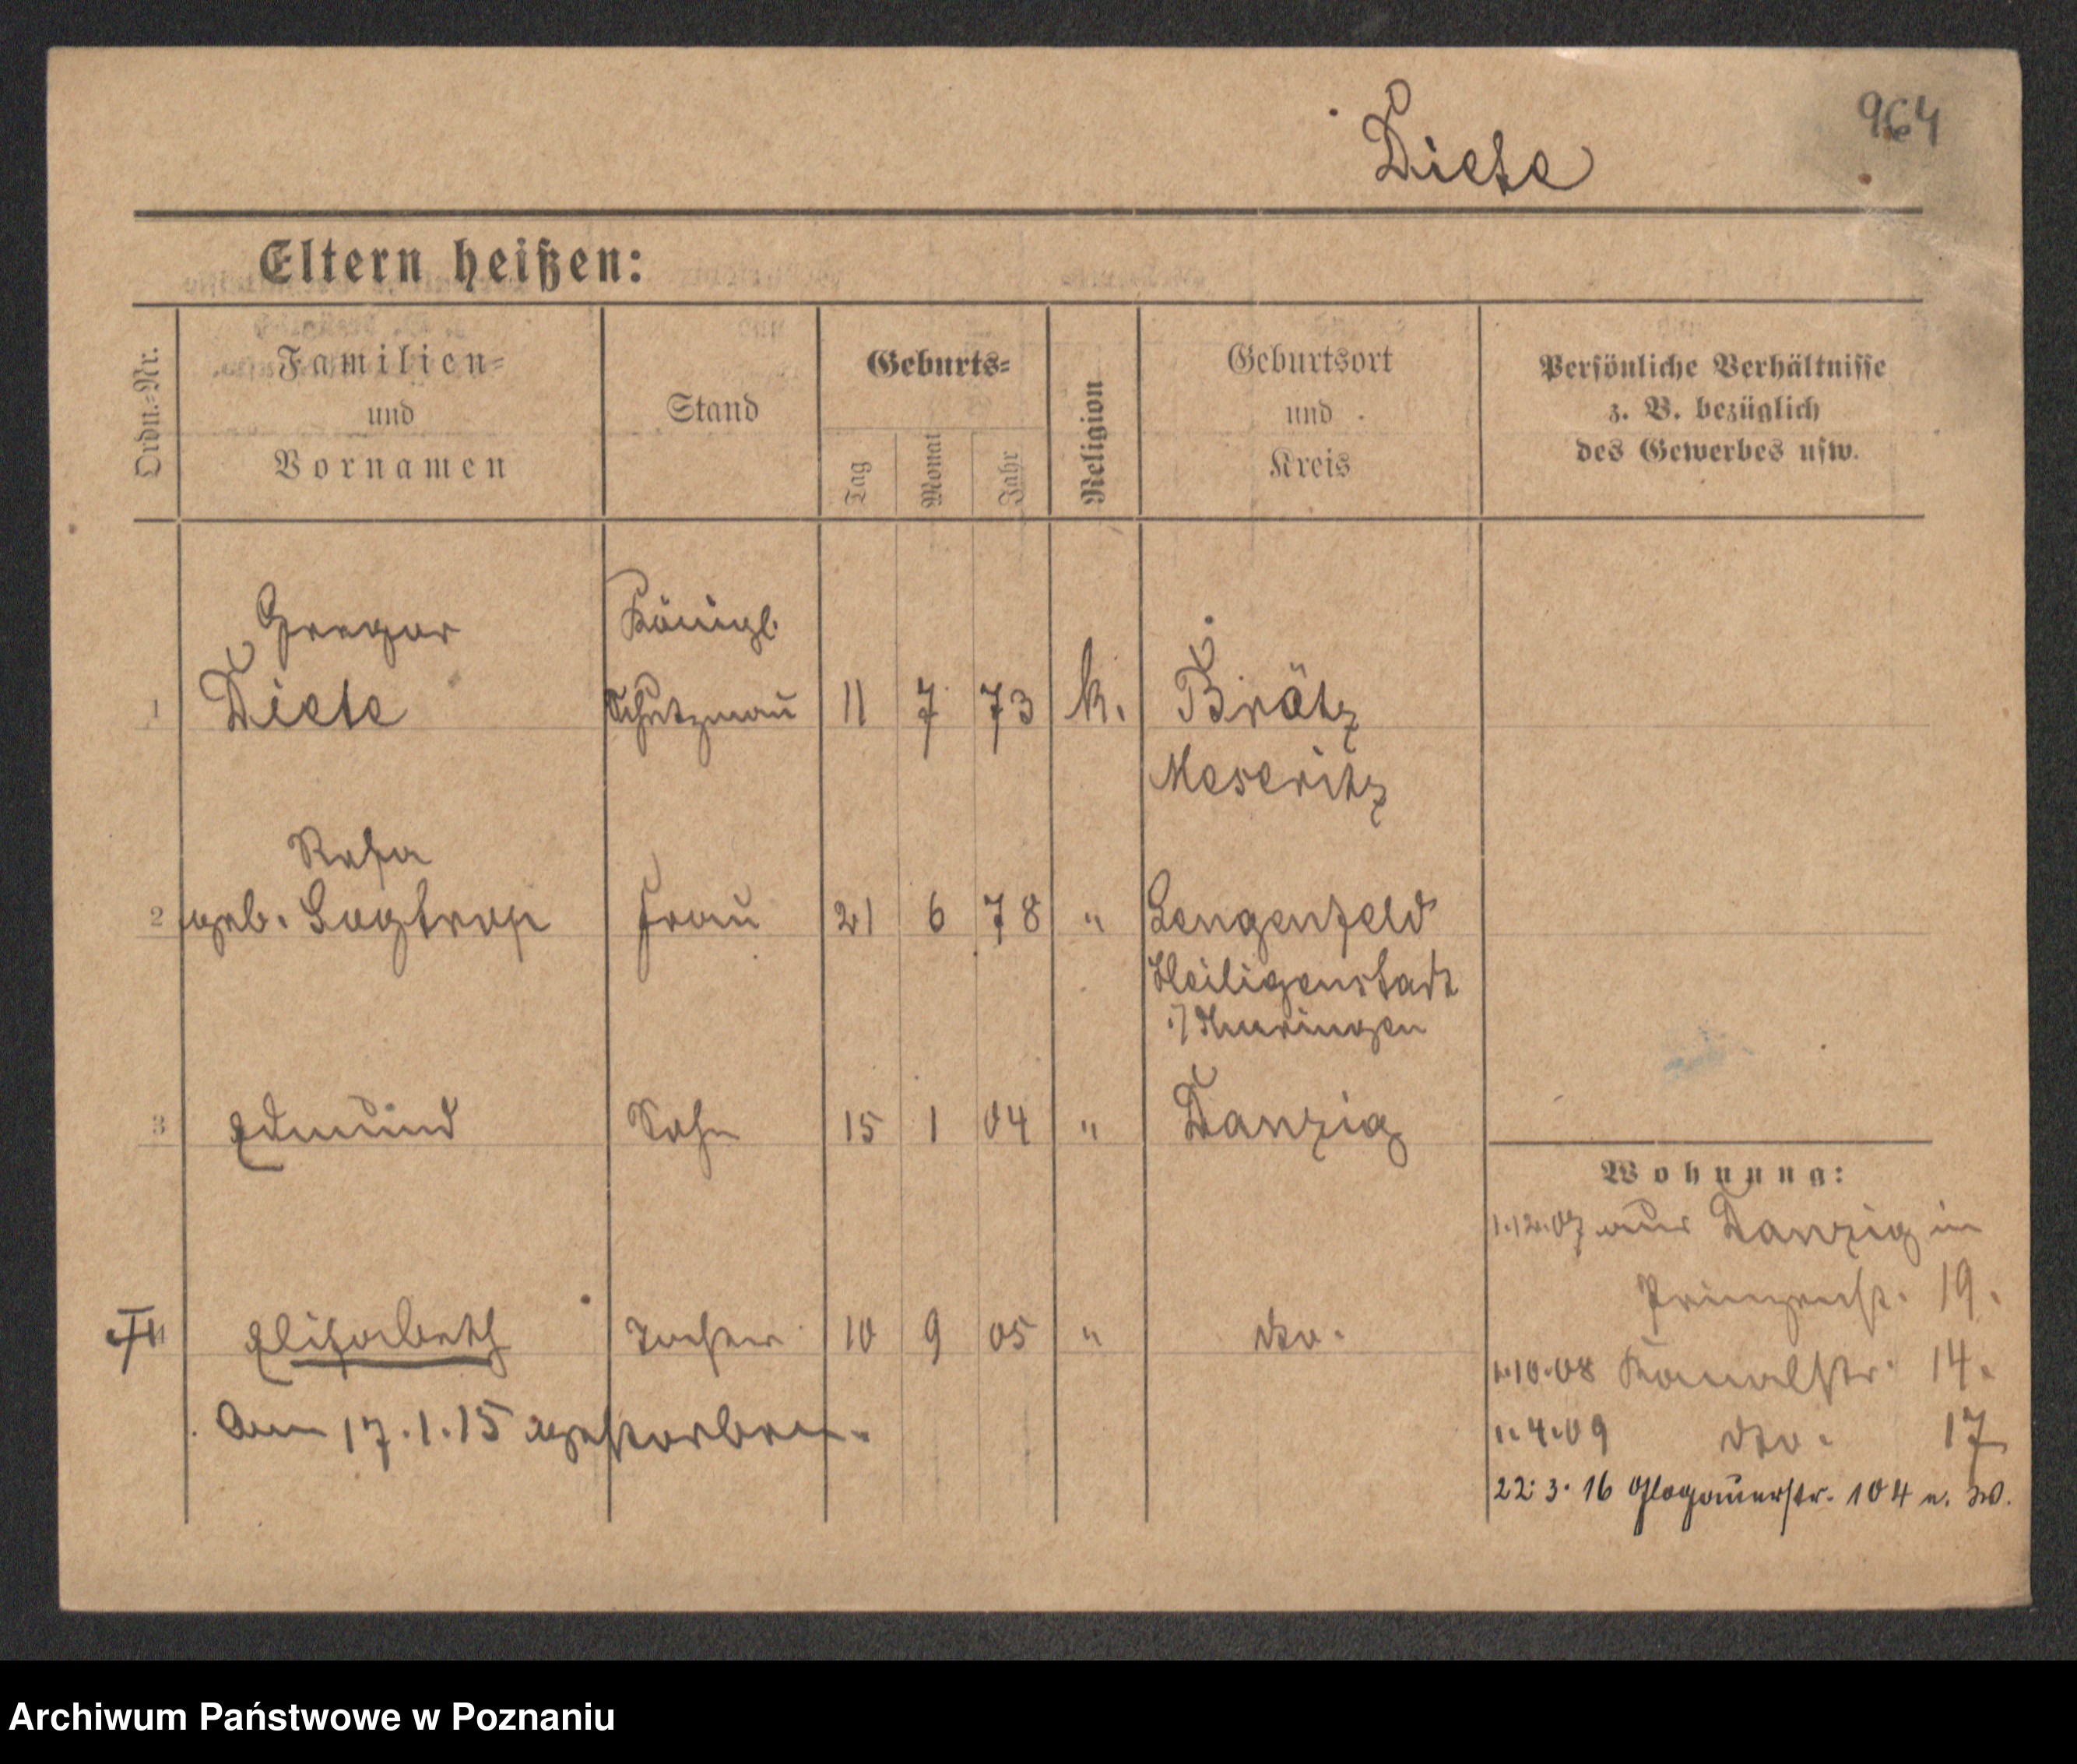 964
Diete
Eltern heißen:
Ordn.-Nr.
Familien-
und
Vornamen
Stand
Geburts-
Tag
Monat
Jahr
Religion
Geburtsort
und
Kreis
Persönliche Verhältnisse
z. B. bezüglich
des Gewerbes usw.
Gregor Königl.
1 Diete Schutzmañ 11 7 73 k. Brätz
Meseritz
Rosa
2 geb. Frau 21 6 78 " Lengenfeld
Heiligenstadt
i/Thuringen
3 Edmund Sohn 15 1 04 " Danzig
Wohnung:
1.12.07 aus Danzig in
Prinzenst. 19.
4 Elisabeth Tochter 10 9 05 " dto.
10.08 Kanalstr. 14.
Am 17.1.15 gestorben.
1.4.09 dto. 17
22.3.16 Glogauerstr. 104
Archiwum Państwowe w Poznaniu